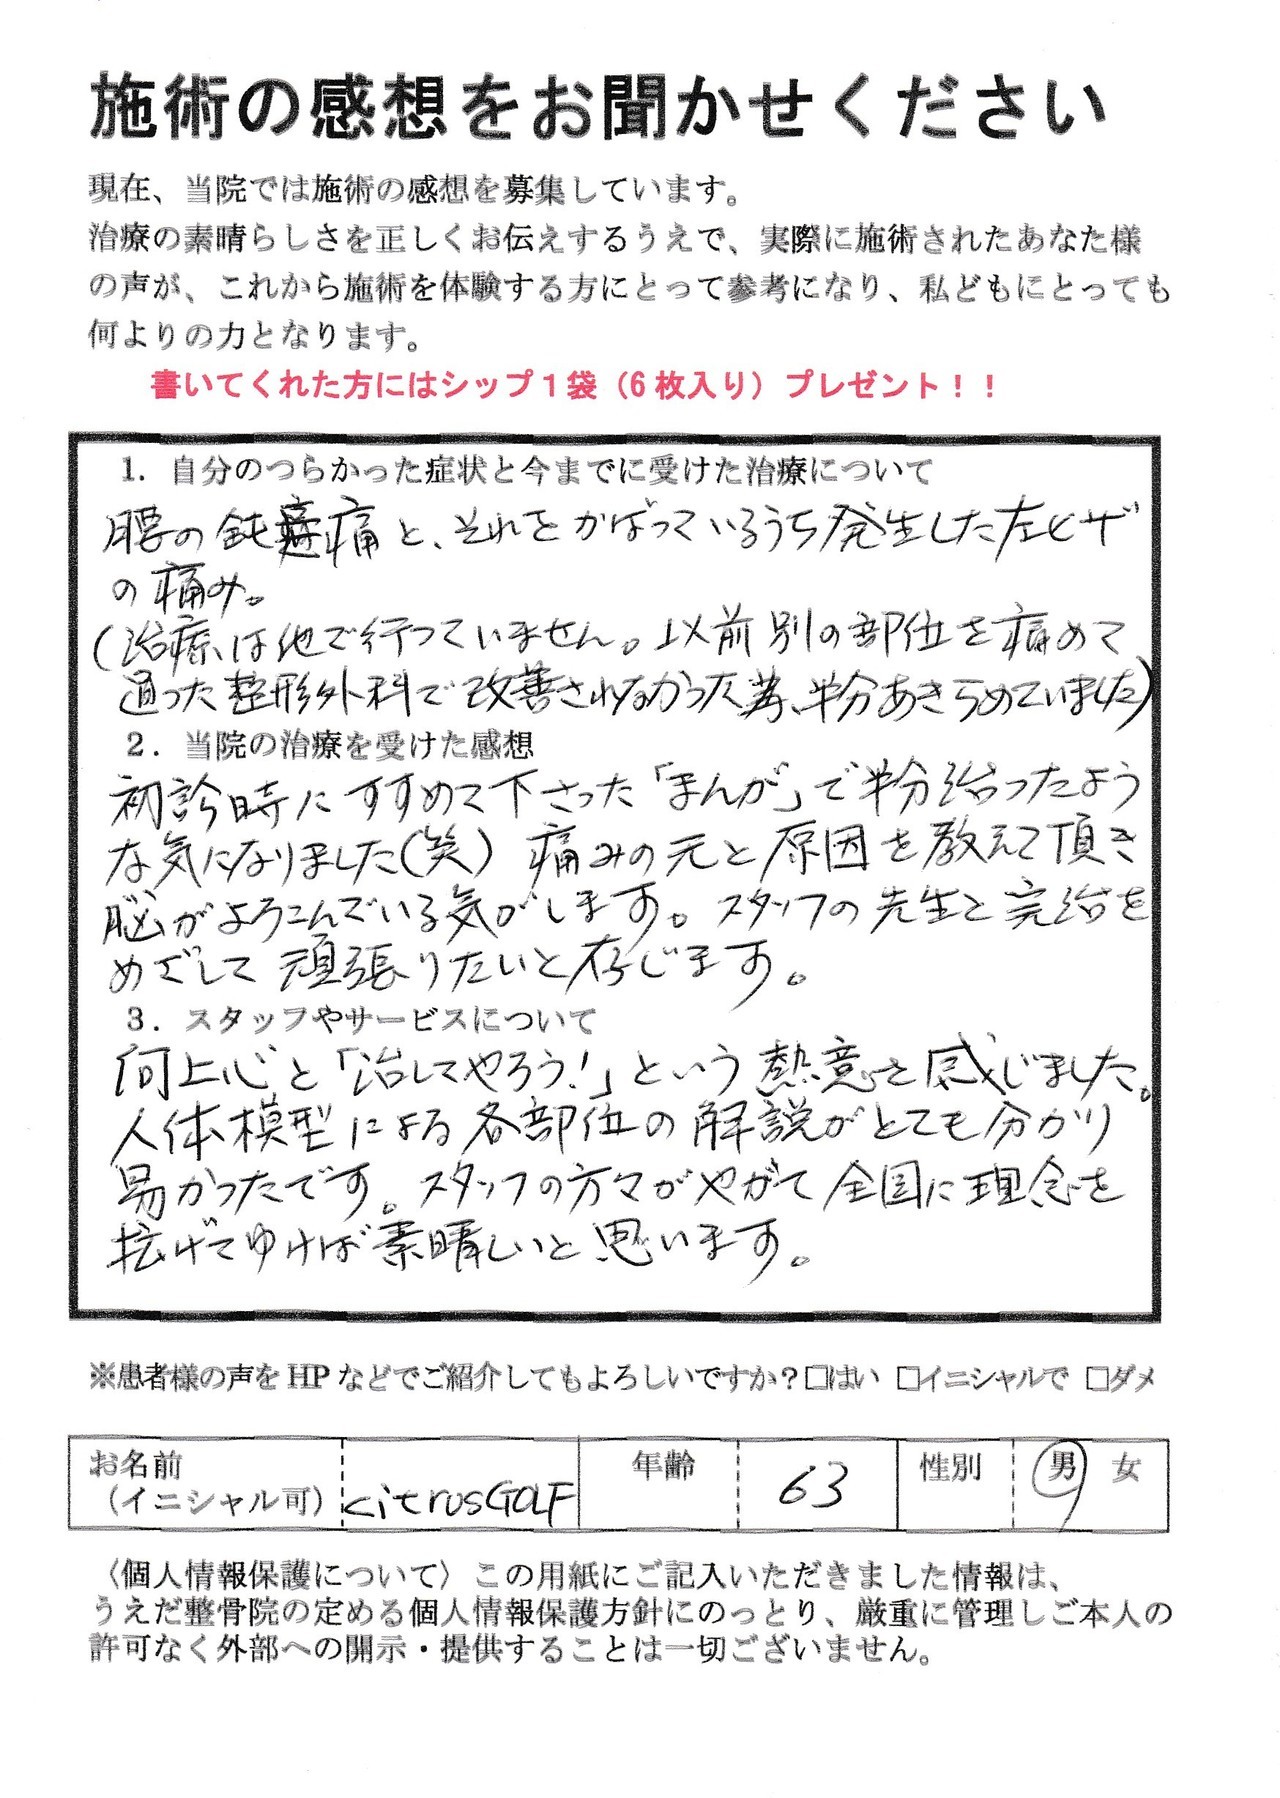 施術の感想をお聞かせください
現在、当院では施術の感想を募集しています。
治療の素晴らしさを正しくお伝えするうえで、実際に施術されたあなた様
の声が、これから施術を体験する方にとって参考になり、私どもにとっても
何よりの力となります。
書いてくれた方にはシップ1袋（6枚入り）プレゼント！！
1. 自分のつらかった症状と今までに受けた治療について
腰の鈍痛と、それをかばっているうち発生した左ヒザ
の痛み。
(治療は他で行っていません。以前別の部位を痛めて
通った整形外科で改善されなかった為、半分あきらめていました)
2. 当院の治療を受けた感想
初診時にすすめて下さった「まんが」で半分治ったよう
な気になりました(笑) 痛みの元と原因を教えて頂き
脳がよろこんでいる気がします。スタッフの先生と完治を
めざして頑張りたいと存じます。
3. スタッフやサービスについて
向上心と「治してやろう!」という熱意を感じました。
人体模型による各部位の解説がとても分かり
易かったです。スタッフの方々がやがて全国に理念を
拡げてゆけば素晴しいと思います。
※患者様の声をHPなどでご紹介してもよろしいですか？□はい □イニシャルで □ダメ
お名前 年齢 63 性別 男 女
（イニシャル可） citrusGOLF
〈個人情報保護について〉この用紙にご記入いただきました情報は、
うえだ整骨院の定める個人情報保護方針にのっとり、厳重に管理しご本人の
許可なく外部への開示・提供することは一切ございません。